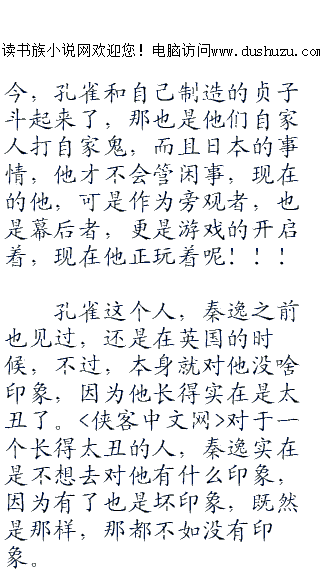 读书族小说网欢迎您！电脑访问www.dushuzu.com
今，孔雀和自己制造的贞子
斗起来了，那也是他们自家
人打自家鬼，而且日本的事
情，他才不会管闲事，现在
的他，可是作为旁观者，也
是幕后者，更是游戏的开启
着，现在他正玩着呢！！！
孔雀这个人，秦逸之前
也见过，还是在英国的时
候，不过，本身就对他没啥
印象，因为他长得实在是太
丑了。<侠客中文网>对于一
个长得太丑的人，秦逸实在
是不想去对他有什么印象，
因为有了也是坏印象，既然
是那样，那都不如没有印
象。